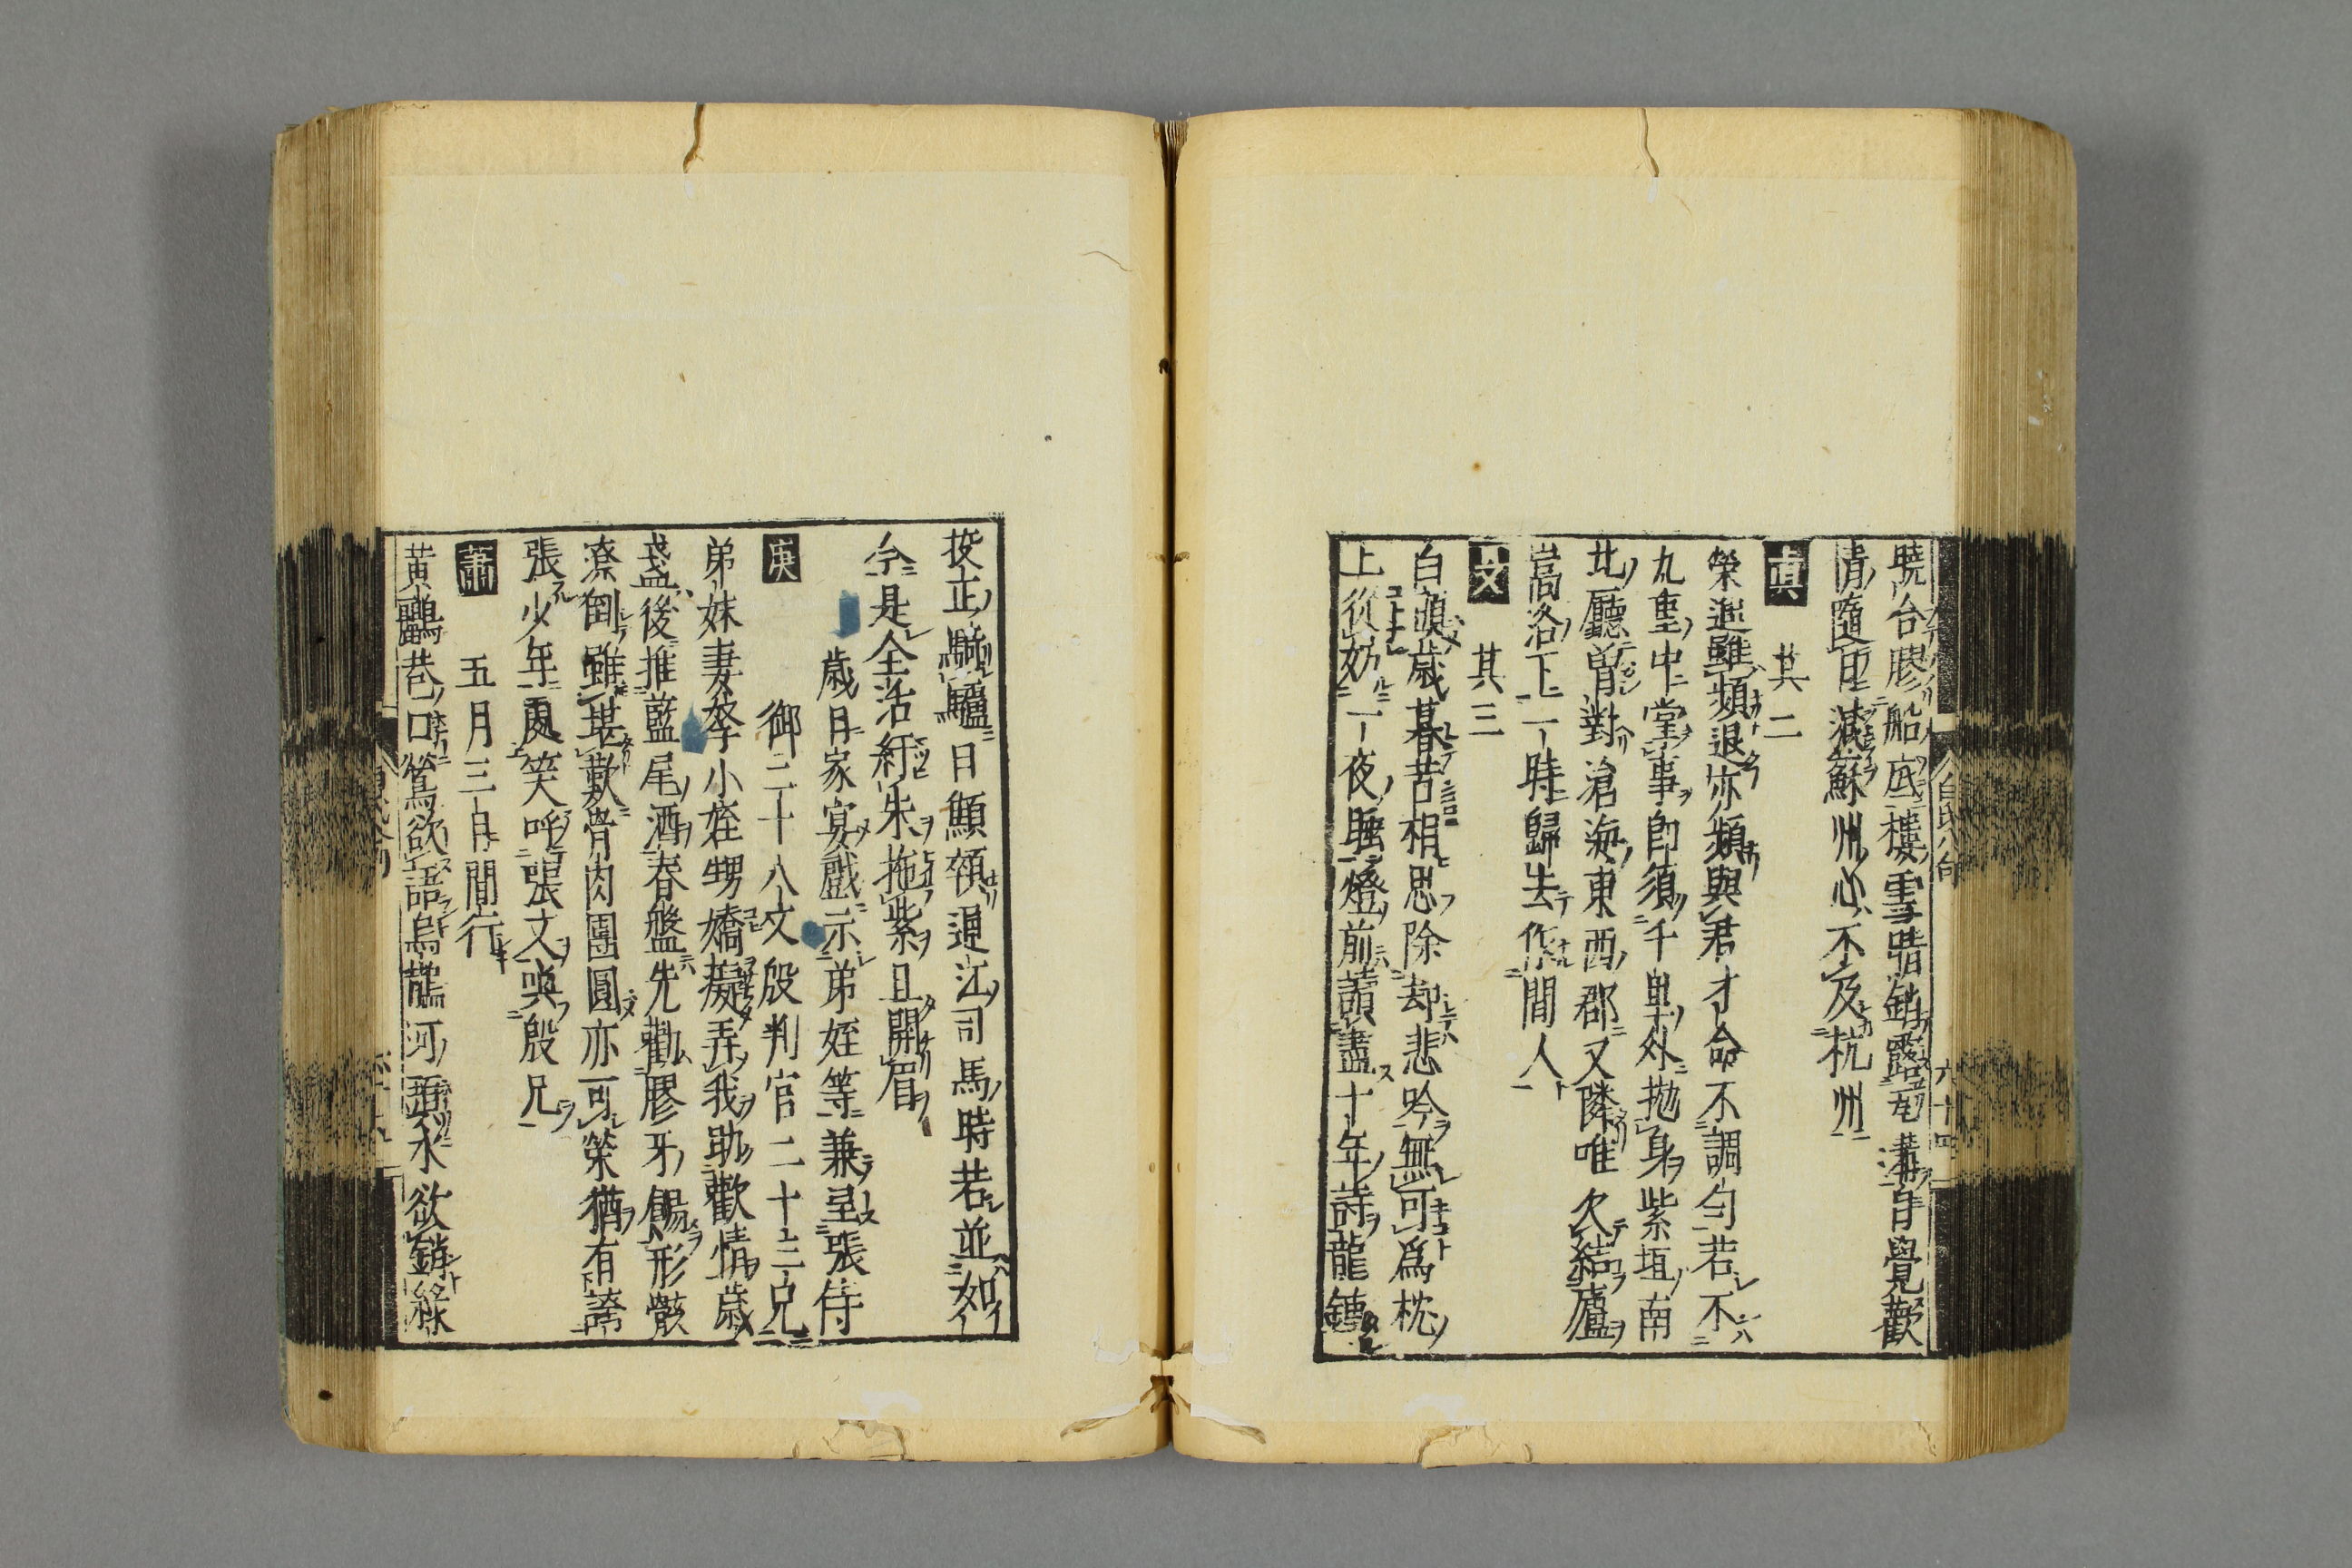 曉台膠船底樓雪晴銷露瓦溝自覺歡
情隨日減蘇州心不及杭州
真 其二
榮進雖頻退亦頻與君才命不調匀若不
九重中堂事即須千里外抛身紫垣南
北廳曽對滄海東西郡又隣唯欠結廬
嵩洛下一時歸去作間人
文 其三
白頭歳暮苦相思除却悲吟無可爲枕
上從妨一夜睡燈前讀盡十年詩龍鍾
校正騎驢日顦顇通江司馬時若並如
今是全活紆朱拖紫且開眉
歳日家宴戲示弟姪等兼呈張侍
庚 御二十八丈殷判官二十三兄
弟妹妻孥小姪甥嬌癡弄我助歡情歳
盞後推藍尾酒春盤先勸膠牙餳形骸
潦倒雖堪歎骨肉團圓亦可榮猶有誇
張少年處笑呼張丈喚殷兄
蕭 五月三日間行
黄鸝巷口鶯欲語烏鵲河頭氷欲銷緑
白氏八句
六十四